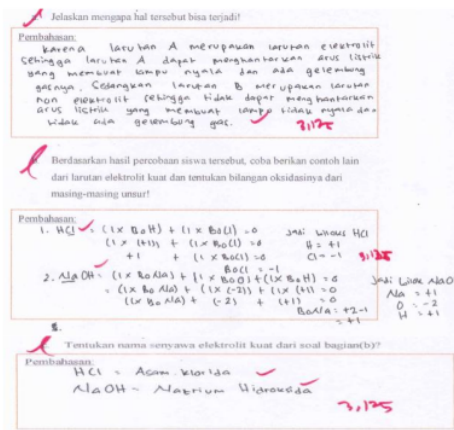 Jelaskan mengapa hal tersebut bisa terjadi!
Pembahasan:
karena larutan A merupakan larutan elektrolit
sehingga larutan A dapat menghantarkan arus listrik
yang membuat lampu nyala dan ada gelembung
gasnya. Sedangkan larutan B merupakan larutan
non elektrolit sehingga tidak dapat menghantarkan
arus listrik yang membuat lampu tidak nyala dan
tidak ada gelembung gas.
3,125
Berdasarkan hasil percobaan siswa tersebut, coba berikan contoh lain
dari larutan elektrolit kuat dan tentukan bilangan oksidasinya dari
masing-masing unsur!
Pembahasan:
1. HCl = (1x BoH) + (1x BoCl) = 0 Jadi untuk HCl
(1x (+1)) + (1x BoCl) = 0 H = +1
+1 + (1x BoCl) = 0 Cl = -1 3,125
BoCl = -1
2. NaOH = (1x BoNa) + (1x BoO) + (1x BoH) = 0 Jadi untuk NaO
= (1x BoNa) + (1x (-2)) + (1x (+1)) = 0 Na = +1
(1x BoNa) + (-2) + (+1) = 0 O = -2
BoNa = +2-1 H = +1
= +1
Tentukan nama senyawa elektrolit kuat dari soal bagian(b)?
Pembahasan:
HCl = Asam klorida
NaOH = Natrium Hidroksida
3,125